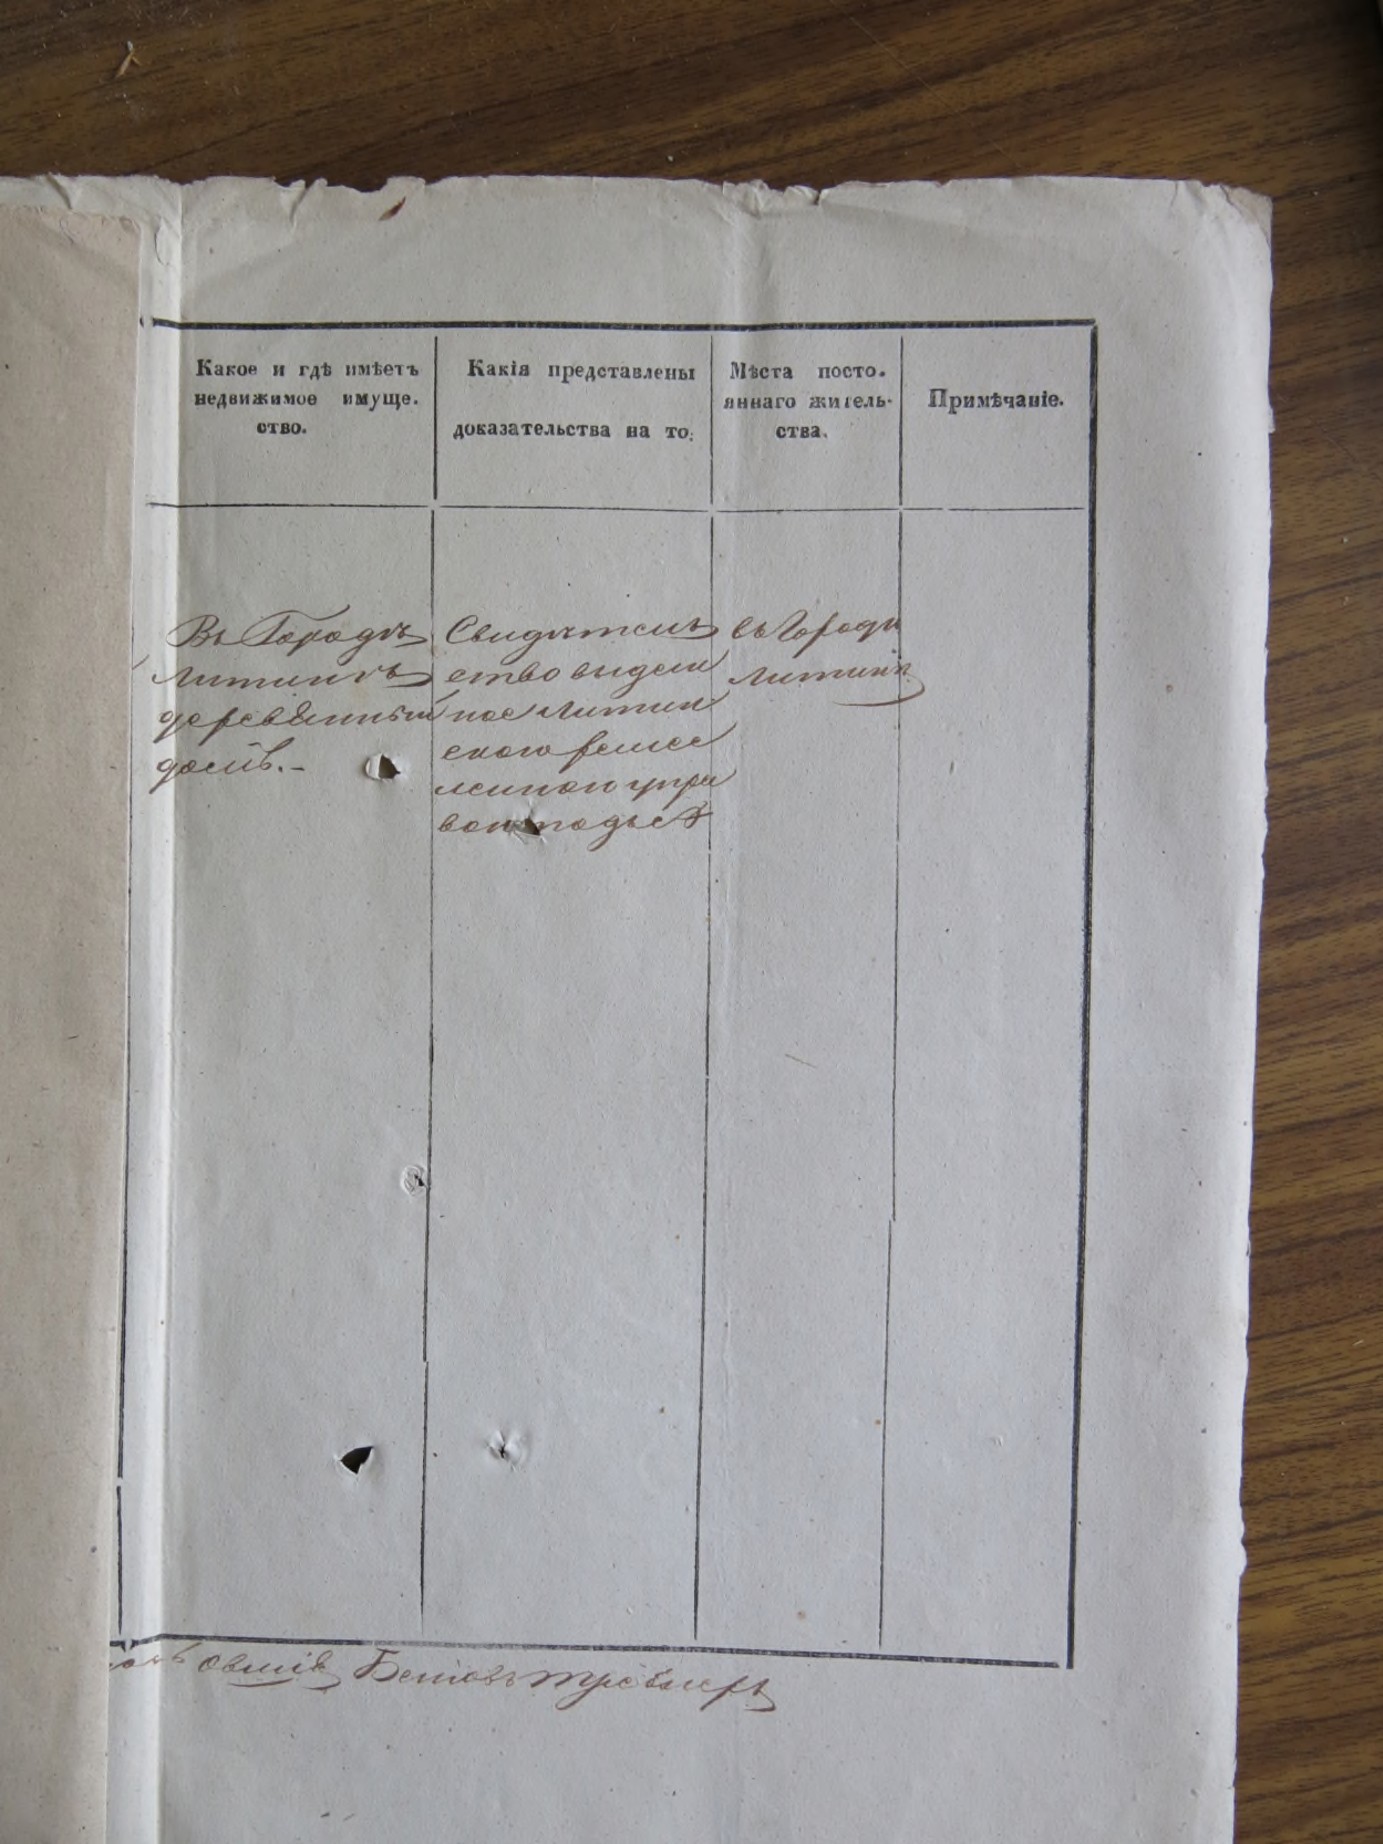 Какое и гдѣ имѣетъ
недвижимое имуще.
ство.
Какія представлены
доказательства на то:
Мѣста посто.
яннаго житель-
ства.
Примѣчаніе.
Въ Городѣ
Литинѣ
деревянный
домъ.-
Свидѣтель
ство выдан
ное Литин
скою ремес
ленною упра
вою
въ Городѣ
Литинѣ